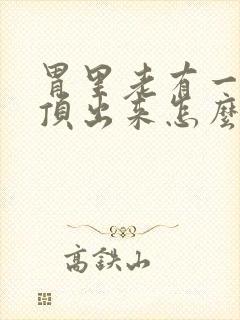 胃里老有一
顶出来怎麼
高鉄山